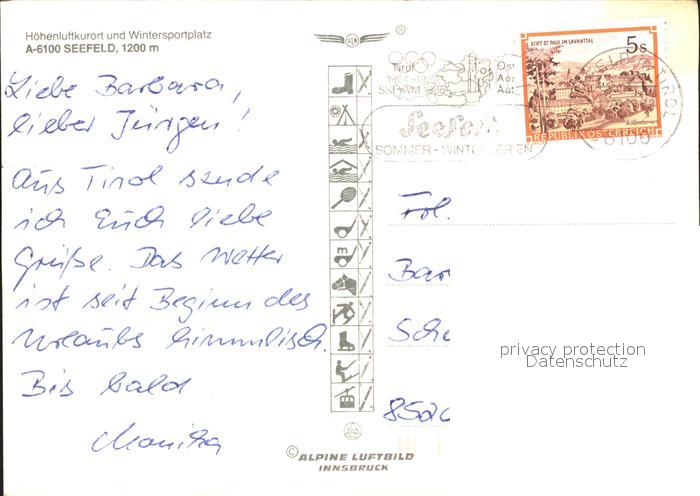 Höhenluftkurort und Wintersportplatz
A-6100 SEEFELD, 1200 m
Liebe Barbara,
lieber Jürgen!
Aus Tirol sende
ich Euch liebe
Grüße. Das Wetter
ist seit Beginn des
Urlaubs himmlisch.
Bis bald
Monika
Tirol
SOMMER - WINTER
STIFT ST. PAUL IM LAVANTTAL
5s
REPUBLIK ÖSTERREICH
TIROL
6100
Frl.
Bar
Sche
852
privacy protection
Datenschutz
© ALPINE LUFTBILD
INNSBRUCK